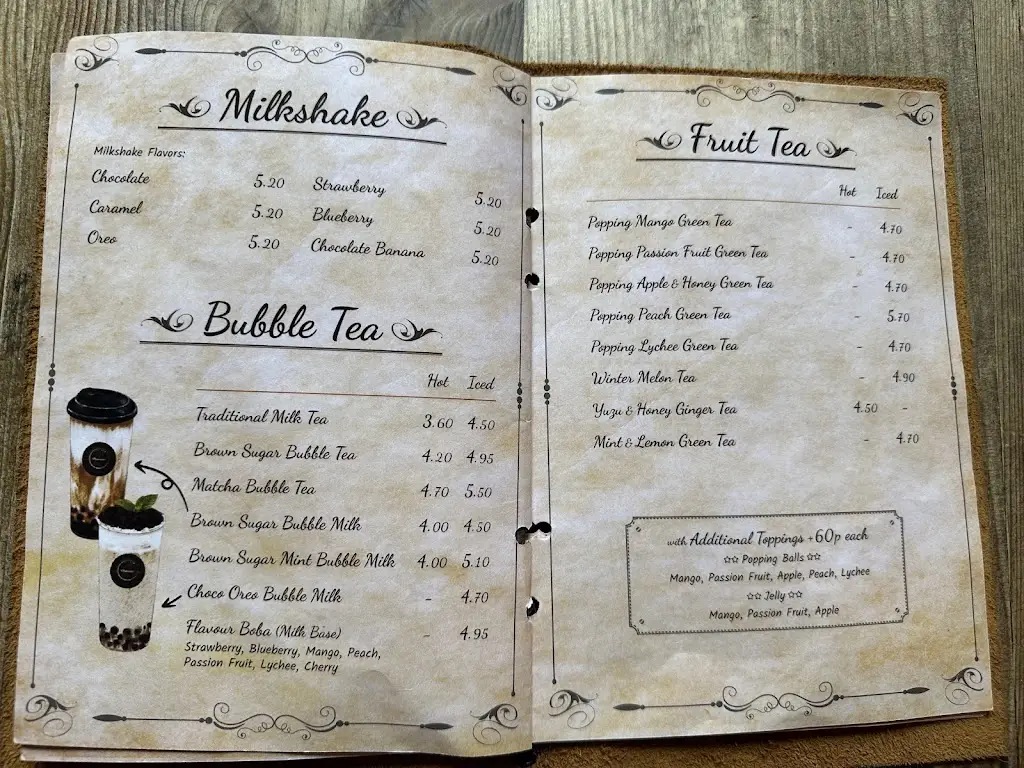 Milkshake
Milkshake Flavors:
Chocolate 5.20 Strawberry 5.20
Caramel 5.20 Blueberry 5.20
Oreo 5.20 Chocolate Banana 5.20
Bubble Tea
Hot Iced
Traditional Milk Tea 3.60 4.50
Brown Sugar Bubble Tea 4.20 4.95
Matcha Bubble Tea 4.70 5.50
Brown Sugar Bubble Milk 4.00 4.50
Brown Sugar Mint Bubble Milk 4.00 5.10
Choco Oreo Bubble Milk - 4.70
Flavour Boba (Milk Base) - 4.95
Strawberry, Blueberry, Mango, Peach,
Passion Fruit, Lychee, Cherry
Fruit Tea
Hot Iced
Popping Mango Green Tea - 4.70
Popping Passion Fruit Green Tea - 4.70
Popping Apple & Honey Green Tea - 4.70
Popping Peach Green Tea - 5.70
Popping Lychee Green Tea - 4.70
Winter Melon Tea - 4.90
Yuzu & Honey Ginger Tea 4.50 -
Mint & Lemon Green Tea - 4.70
with Additional Toppings +60p each
☆☆ Popping Balls ☆☆
Mango, Passion Fruit, Apple, Peach, Lychee
☆☆ Jelly ☆☆
Mango, Passion Fruit, Apple